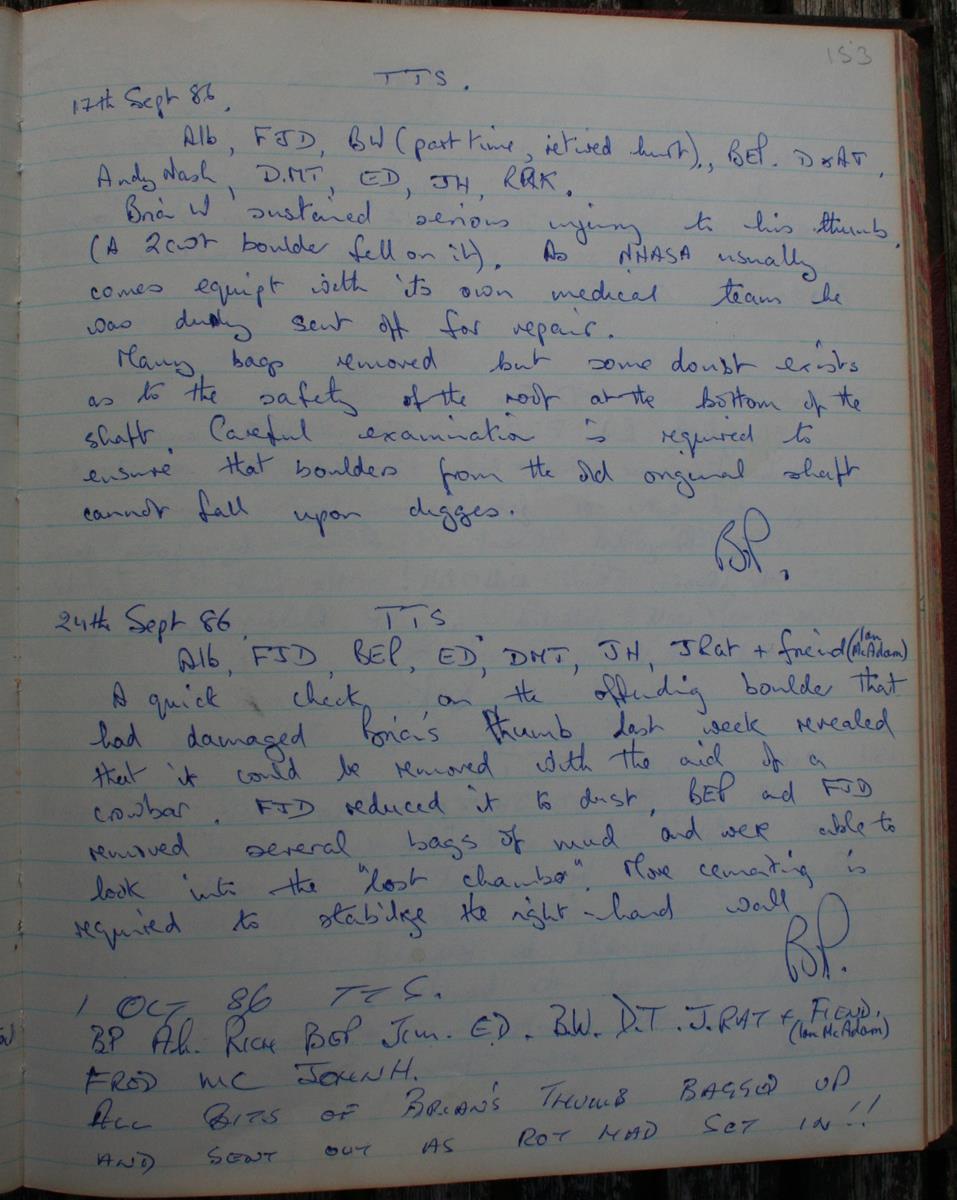 153
TTS.
17th Sept 86.
Alb, FJD, BW (part time, retired hurt), BEP. D&AT,
Andy Nash, D.MT, ED, JH, RAK.
Brian W sustained serious injury to his thumb.
(A 2cwt boulder fell on it). As NHASA usually
comes equipt with its own medical team he
was duly sent off for repair.
Many bags removed but some doubt exists
as to the safety of the roof at the bottom of the
shaft. Careful examination is required to
ensure that boulders from the old original shaft
cannot fall upon digges.
BP.
24th Sept 86. TTS
Alb, FJD, BEP, ED, DMT, JH, JRat + friend (Ian McAdam)
A quick check on the offending boulder that
had damaged Brian's thumb last week revealed
that it could be removed with the aid of a
crowbar. FJD reduced it to dust, BEP and FJD
removed several bags of mud and were able to
look into the "lost chamber". More cementing is
required to stabilise the right-hand wall
BP.
1 OCT 86 TTS.
BP Alb. RICH BEP Jim. ED. B.W. D.T. J.RAT + FIEND,
(Ian McAdam)
FRED MC JOHN H.
ALL BITS OF BRIAN'S THUMB BAGGED UP
AND SENT OUT AS ROT HAD SET IN!!